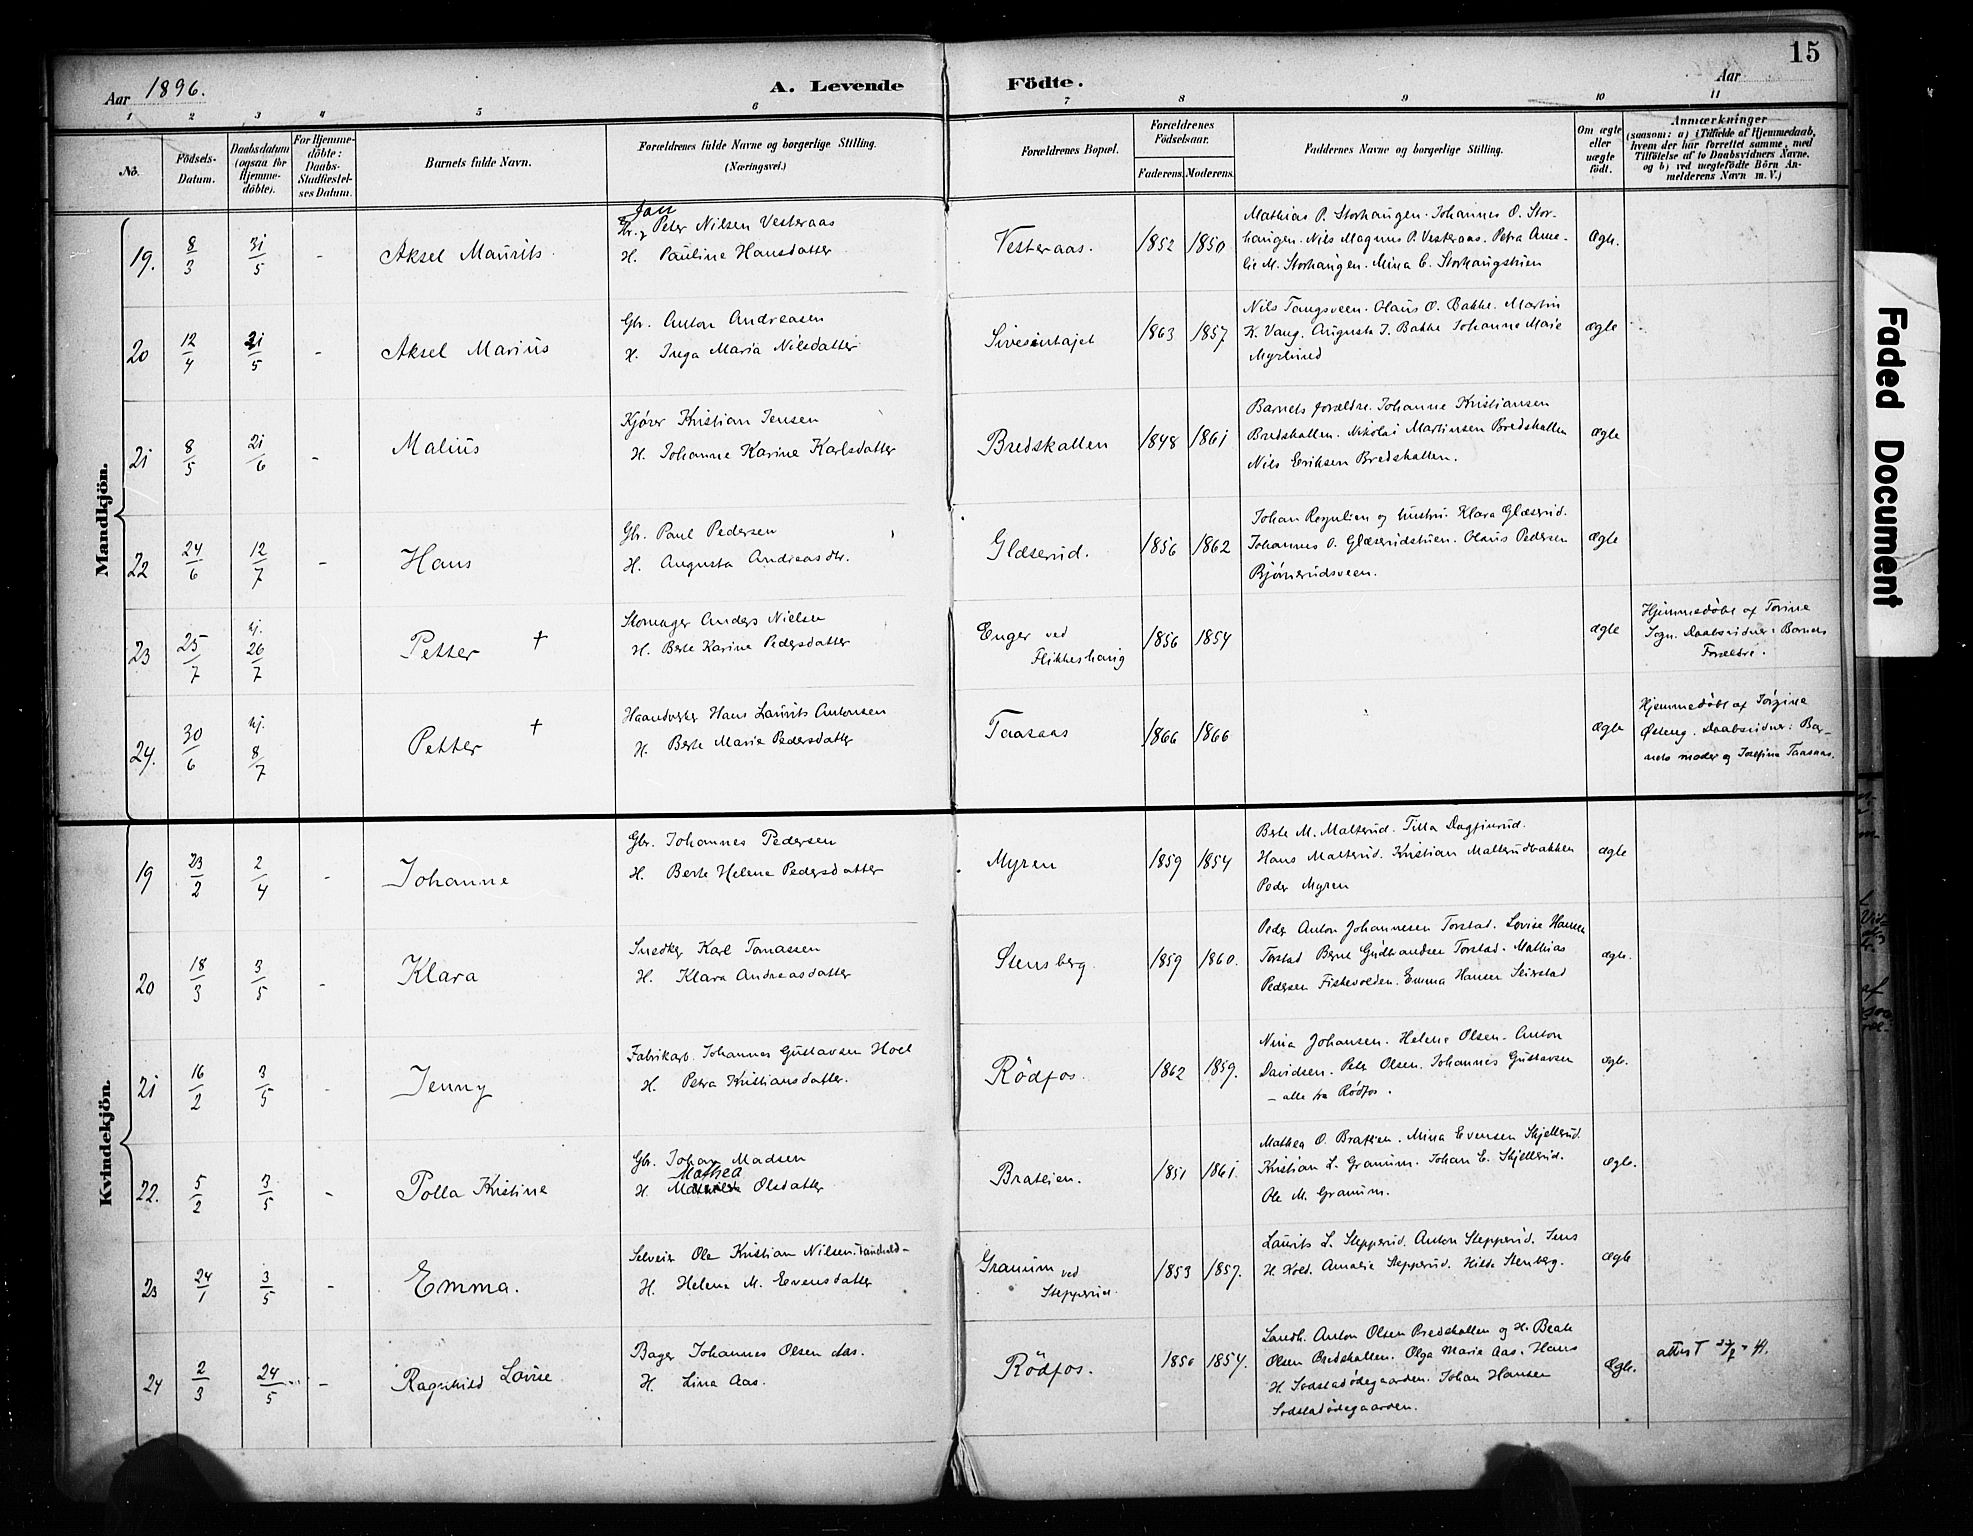 15
Aar 1896.
A. Levende Födte.
Aar
1 2 3 4 5 6 7 8 9 10 11
No.
Födsels-
Datum.
Daabsdatum
(ogsaa for
Hjemme-
döbte).
For Hjemme-
döbte:
Daabs-
Stadfæstel-
ses Datum.
Barnets fulde Navn.
Forældrenes fulde Navne og borgerlige Stilling.
(Næringsvei.)
Forældrenes Bopæl.
Forældrenes
Födselsaar.
Faderens. Moderens.
Faddernes Navne og borgerlige Stilling.
Om ægte
eller
uægte
født.
Anmærkninger
(saasom: a) i Tilfælde af Hjemmedaab,
hvem der har forrettet samme, med
Tilföielse af to Daabsvidners Navne,
og b) ved uægtefödte Börn An-
melderens Navn m. V.)
Mandkjön.
19. 8/3 31/5 - Aksel Maurits.
Peter Nilsen Vesteraas
H. Pauline Hansdatter
Vesteraas. 1852 1850
Mathias P. Storhaugen. Johannes O. Stor-
haugen. Nils Magnus P. Vesteraas. Petra Ame-
lie M. Storhaugen. Mina C. Storhaugstuen
Ægte.
20 12/4 21/5 - Aksel Marius
Gbr. Anton Andreasen
H. Inga Maria Nilsdatter
1863 1857
Nils Tangsveen. Olaus O. Bakke. Martin
K. Vang. Augusta J. Bakke Johanne Marie
Myrlund
ægte
21 8/5 21/6 - Malius
Kjører Kristian Jensen
H. Johanne Karine Karlsdatter
Bredskallen 1848 1861
Barnets forældre. Johanne Kristiansen
Bredskallen. Nikolai Martinsen Bredskallen
Nils Eriksen Bredskallen.
ægte
22 24/6 12/7 - Hans
Gbr. Paul Pedersen
H. Augusta Andreasdtr.
Glæserud. 1856 1862
Johan og hustru. Klara Glæserud.
Johannes O. Glæserudstuen. Olaus Pedersen
Bjørnerudsveen.
ægte
23 25/7 hj. 26/7 Petter †
Skomager Anders Nielsen
H. Berte Karine Pedersdatter
Enger ved
Flikkeshaug
1856 1854
ægte
Hjemmedøbt af Torine
Sogn. Daabsvidner: Barnets
Forældre.
24. 30/6 hj. 8/7 Petter †
Haandverker Hans Laurits Antonsen
H. Berte Marie Pedersdatter
Taasaas 1866 1866
Ægte
Hjemmedøbt af Jørgine
Østeng. Daabsvidner: Bar-
nets moder og Josefine Taasaas.
Kvindekjön.
19 23/2 2/4 - Johanne
Gbr. Johannes Pedersen
H. Berte Helene Pedersdatter
Myren 1859 1854
Berte M. Malterud. Tilla Dagfinrud.
Hans Malterud. Kristian Malterudbakken
Peder Myren
ægte
20 18/3 3/5 - Klara
Snedker Karl Tomassen
H. Klara Andreasdatter
Stensberg 1859 1860.
Peder Anton Johannesen Torstad. Lovise Hansen
Torstad Bernt Gudbrandsen Torstad. Mathias
Pedersen Fiskevolden. Emma Hansen Seierstad
ægte.
21 16/2 3/5 - Jenny
Fabrikarb. Johannes Gustavsen Hoel
H. Petra Kristiansdatter.
Rödfos. 1862 1859.
Nina Johansen. Helene Olsen. Anton
Davidsen. Peter Olsen. Johannes Gustavsen
- alle fra Rödfos.
ægte.
22. 5/2 3/5 - Polla Kristine
Gbr. Johan Madsen
Mathea
H. Olsdatter
Brateien. 1851 1861.
Mathea O. Brateien. Mina Evensen Skjellerud.
Kristian L. Granum. Johan E. Skjellerud.
Ole M. Granum.
ægte.
23 24/1 3/5 - Emma.
Selveier Ole Kristian Nilsen.
H. Helene M. Evensdatter
Granum ved
Stepperud.
1853 1857.
Laurits L. Stepperud. Anton Stepperud. Jens
H. Amalie Stepperud. Hilda Stenberg.
Ægte
24 2/3 24/5 - Ragnhild Lovise.
Bager Johannes Olsen Aas.
H. Lina Aas.
Rödfos. 1850 1854.
Landh. Anton Olsen Bredskallen og H. Beate
Olsen Bredskallen. Olga Marie Aas. Hans
H. Sodstadødegaarden. Johan Hansen
Sodstadødegaarden.
Ægte.
Faded Document